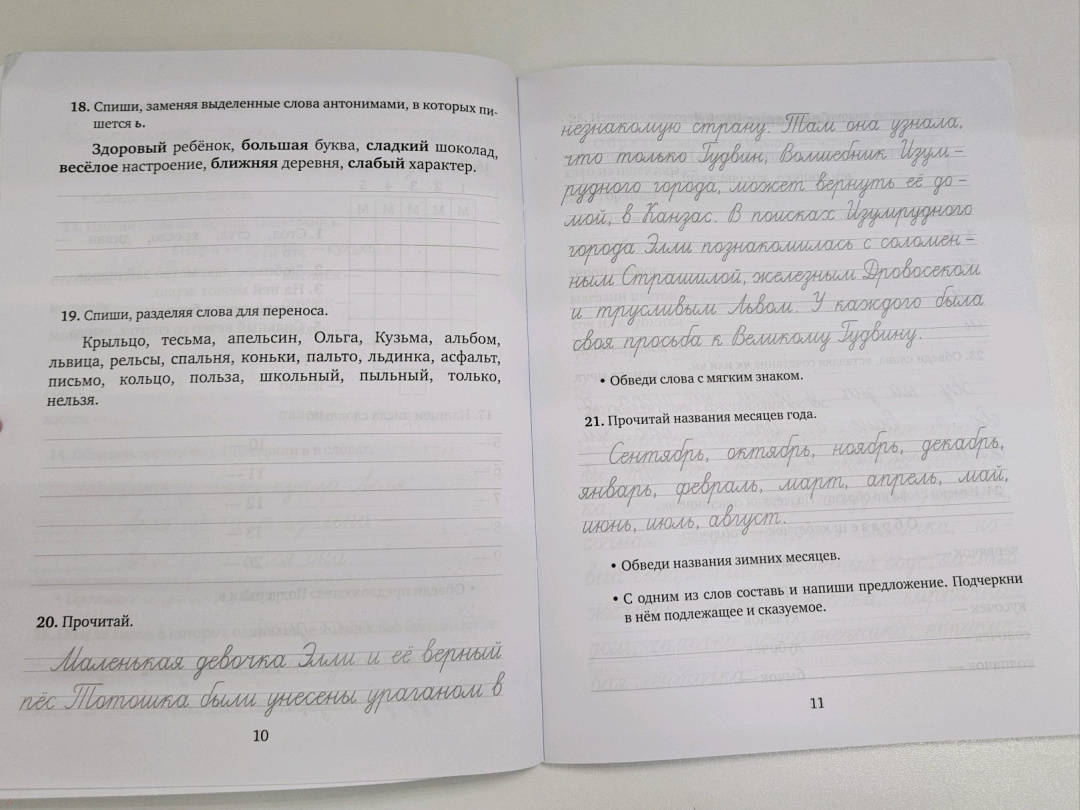 18. Спиши, заменяя выделенные слова антонимами, в которых пи-
шется ь.
Здоровый ребёнок, большая буква, сладкий шоколад,
весёлое настроение, ближняя деревня, слабый характер.
19. Спиши, разделяя слова для переноса.
Крыльцо, тесьма, апельсин, Ольга, Кузьма, альбом,
львица, рельсы, спальня, коньки, пальто, льдинка, асфальт,
письмо, кольцо, польза, школьный, пыльный, только,
нельзя.
20. Прочитай.
Маленькая девочка Элли и её верный
пёс Тотошка были унесены ураганом в
10
незнакомую страну. Там она узнала,
что только Гудвин, Волшебник Изум-
рудного города, может вернуть её до-
мой, в Канзас. В поисках Изумрудного
города Элли познакомилась с соломен-
ным Страшилой, железным Дровосеком
и трусливым Львом. У каждого была
своя просьба к Великому Гудвину.
• Обведи слова с мягким знаком.
21. Прочитай названия месяцев года.
Сентябрь, октябрь, ноябрь, декабрь,
январь, февраль, март, апрель, май,
июнь, июль, август.
• Обведи названия зимних месяцев.
• С одним из слов составь и напиши предложение. Подчеркни
в нём подлежащее и сказуемое.
11